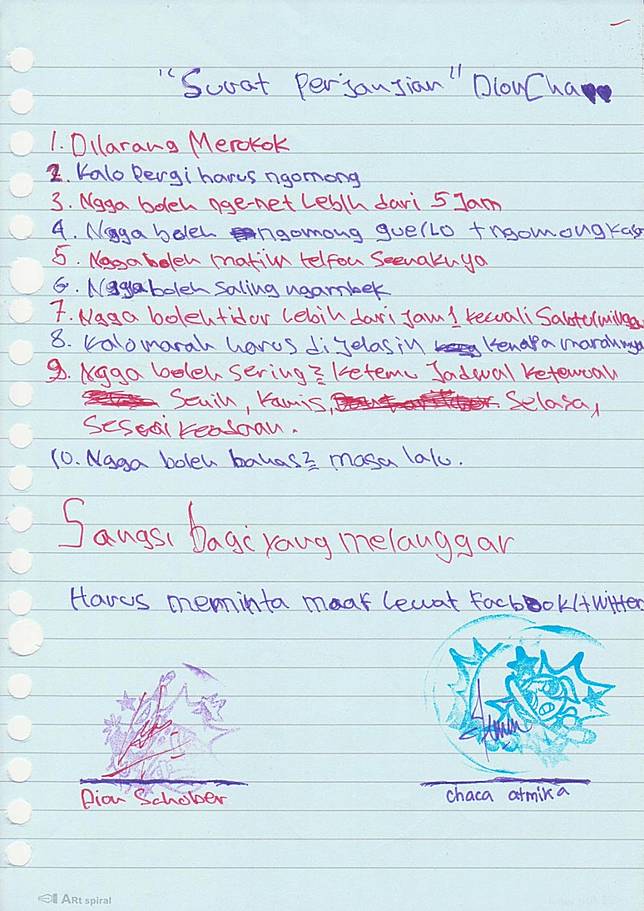 "Surat Perjanjian" DionCha
1. Dilarang Merokok
2. Kalo Pergi harus ngomong
3. Ngga boleh nge-net Lebih dari 5 Jam
4. Ngga boleh ngomong gue/Lo + ngomong kasar
5. Ngga boleh matiin telfon Seenaknya
6. Ngga boleh Saling ngambek
7. Ngga boleh tidur Lebih dari Jam 1 kecuali Sabtu/minggu
8. Kalo marah harus di jelasin kenapa marahnya
9. Ngga boleh Sering2 ketemu Jadwal ketemuan
Senin, Kamis, Selasa,
Sesuai keadaan.
10. Ngga boleh bahas2 masa lalu.
Sangsi bagi yang melanggar
Harus meminta maaf lewat Facbook/twitter
Dion Schober
chaca atmika
ARt spiral